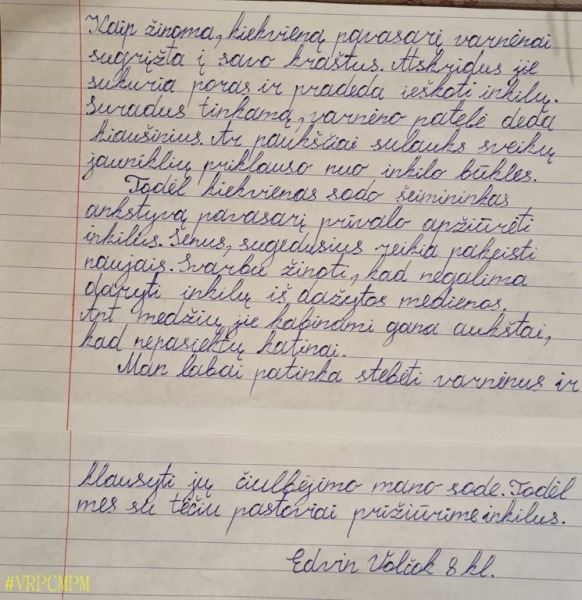 Kaip žinoma, kiekvieną pavasarį varnėnai
sugrįžta į savo kraštus. Atskridus jie
sukuria poras ir pradeda ieškoti inkilų.
Suradus tinkamą, varnėno patelė deda
kiaušinius. Ar paukščiai sulauks sveikų
jauniklių priklauso nuo inkilo būklės.
Todėl kiekvienas sodo šeimininkas
ankstyvą pavasarį privalo apžiūrėti
inkilus. Senus, sugedusius reikia pakeisti
naujais. Svarbu žinoti, kad negalima
daryti inkilų iš dažytos medienos.
Ant medžių jie kabinami gana aukštai,
kad nepasiektų katinai.
Man labai patinka stebėti varnėnus ir
klausyti jų čiulbėjimo mano sode. Todėl
mes su tėčiu pastoviai prižiūrime inkilus.
Edvin Volčok 8 kl.
#VRPCMPM